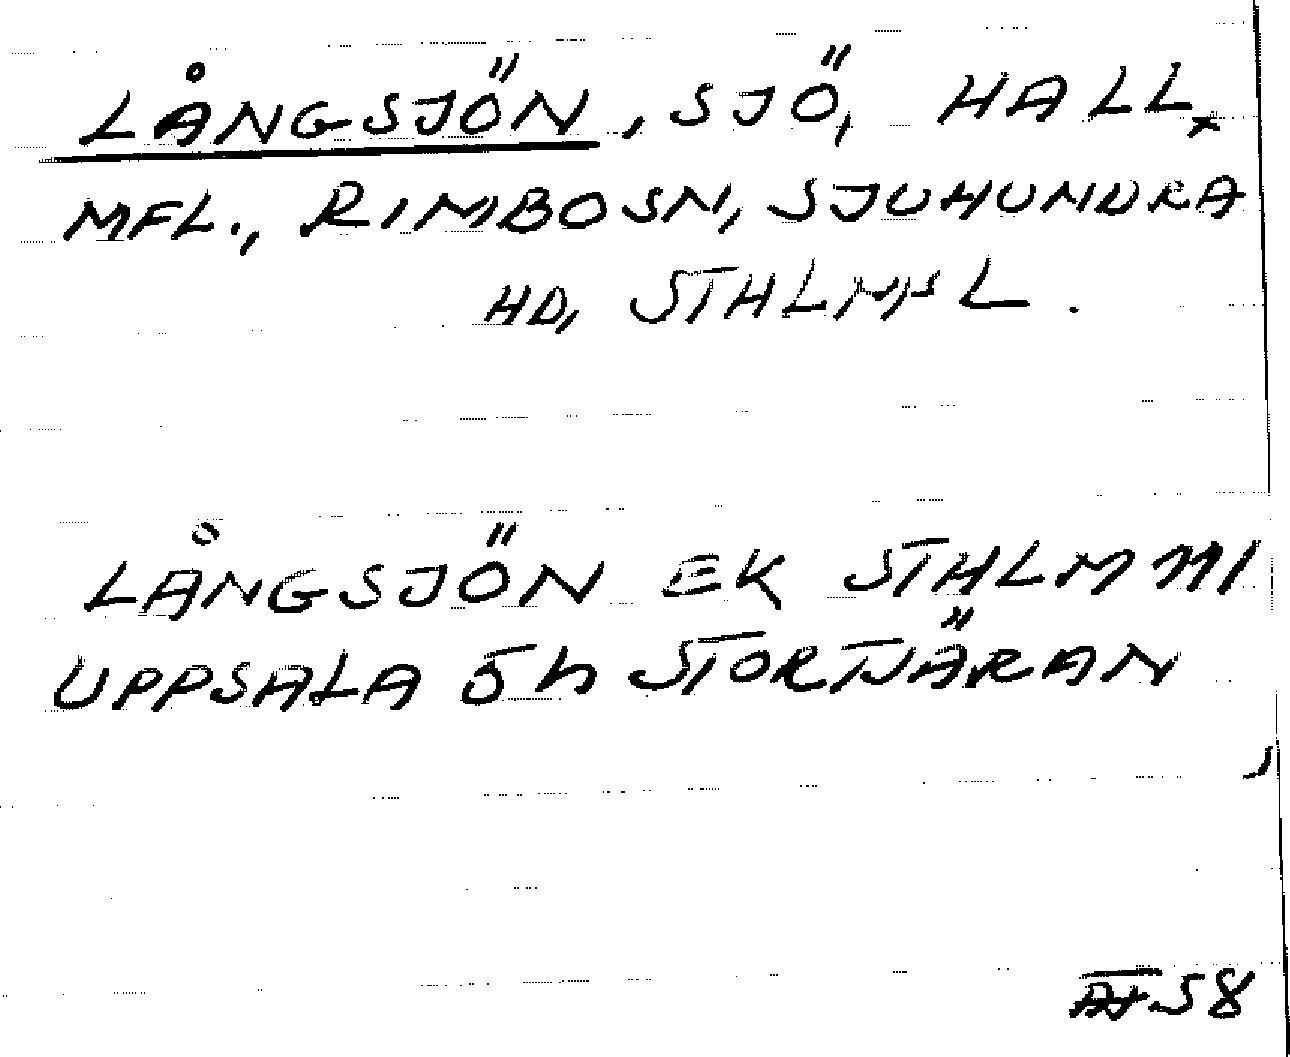 LÅNGSJÖN, SJÖ, HALL,
MFL., RIMBOSN, SJUHUNDRA
HD, STHLMS L.
LÅNGSJÖN EK STHLM 111
UPPSALA 5h STORTJÄRAN
58